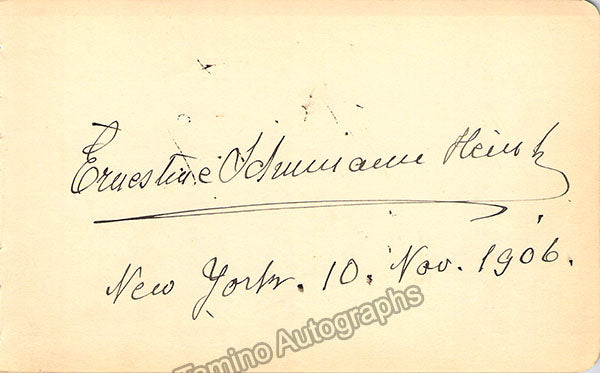 Ernestine Schumann Heink
New York. 10. Nov. 1906.
Tamino Autographs